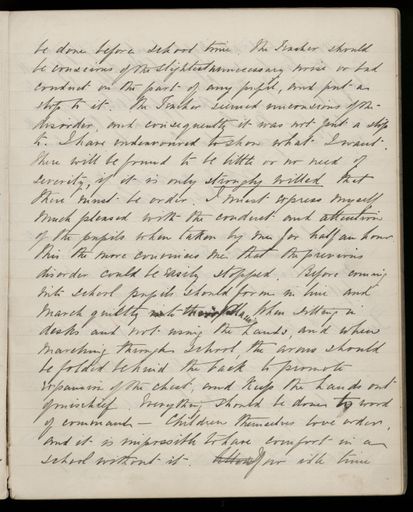 be done before school time. The Teacher should
be conscious of the slightest unnecessary noise or bad
conduct on the part of any pupil, and put a
stop to it. The Teacher seemed unconscious of the
disorder, and consequently it was not put a stop
to. I have endeavoured to show what I want.
There will be found to be little or no need of
severity, if it is only strongly willed that
there must be order. I must express myself
much pleased with the conduct and attention
of the pupils when taken by me for half an hour
this the more convinces me that the previous
disorder could be easily stopped. Before coming
into school pupils should form in line and
march quietly when sitting in
desks and not using the hands, and when
marching through School the arms should
be folded behind the back to promote
expansion of the chest, and keep the hands out
of mischief. Everything should be done by word
of command — Children themselves love order,
and it is impossible to have comfort in a
school without it. for idle time